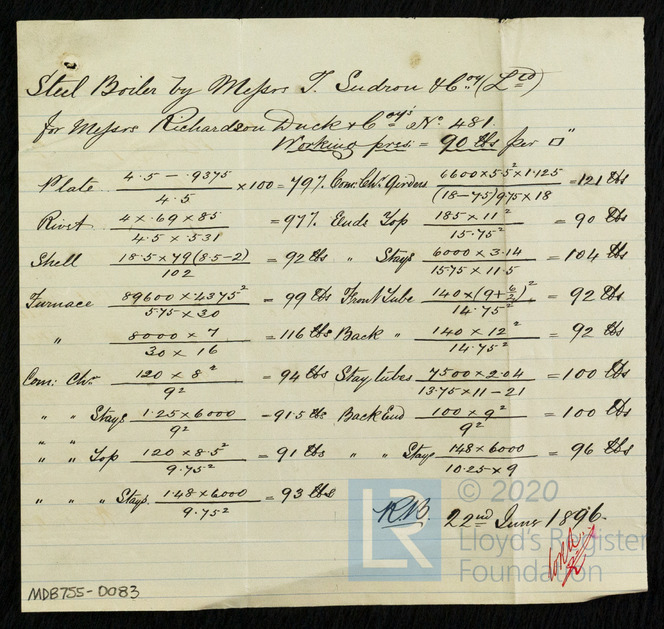 Steel Boiler by Messrs T. Sudron & Coy (Ltd)
for Messrs Richardson Duck & Coy's No 481.
Working pres: = 90 lbs per □"
Plate 4.5 - .9375 / 4.5 × 100 = 79% Com: Chr Girders 6600 × 5.5² × 1.125 / (18 - 7.5) 9.75 × 18 = 121 lbs
Rivet 4 × .69 × 85 / 4.5 × .531 = 97% Ends Top 185 × 11² / 15.75² = 90 lbs
Shell 18.5 × 79 (8.5 - 2) / 102 = 92 lbs " Stays 6000 × 3.14 / 15.75 × 11.5 = 104 lbs
Furnace 89600 × .4375² / 5.75 × 30 = 99 lbs Front Tube 140 × (9 + 6/2)² / 14.75² = 92 lbs
" 8000 × 7 / 30 × 16 = 116 lbs Back " 140 × 12² / 14.75² = 92 lbs
Com: Chr 120 × 8² / 9² = 94 lbs Stay tubes 7500 × 2.04 / 13.75 × 11 - 21 = 100 lbs
" " Stays 1.25 × 6000 / 9² = 91.5 lbs Back End 100 × 9² / 9² = 100 lbs
" "
" " Top 120 × 8.5² / 9.75² = 91 lbs " " Stays 1.48 × 6000 / 10.25 × 9 = 96 lbs
" " " Stays. 1.48 × 6000 / 9.75² = 93 lbs
R.B. 22nd June 1896.
MDB755-0083
LR
© 2020
Lloyd's Register
Foundation